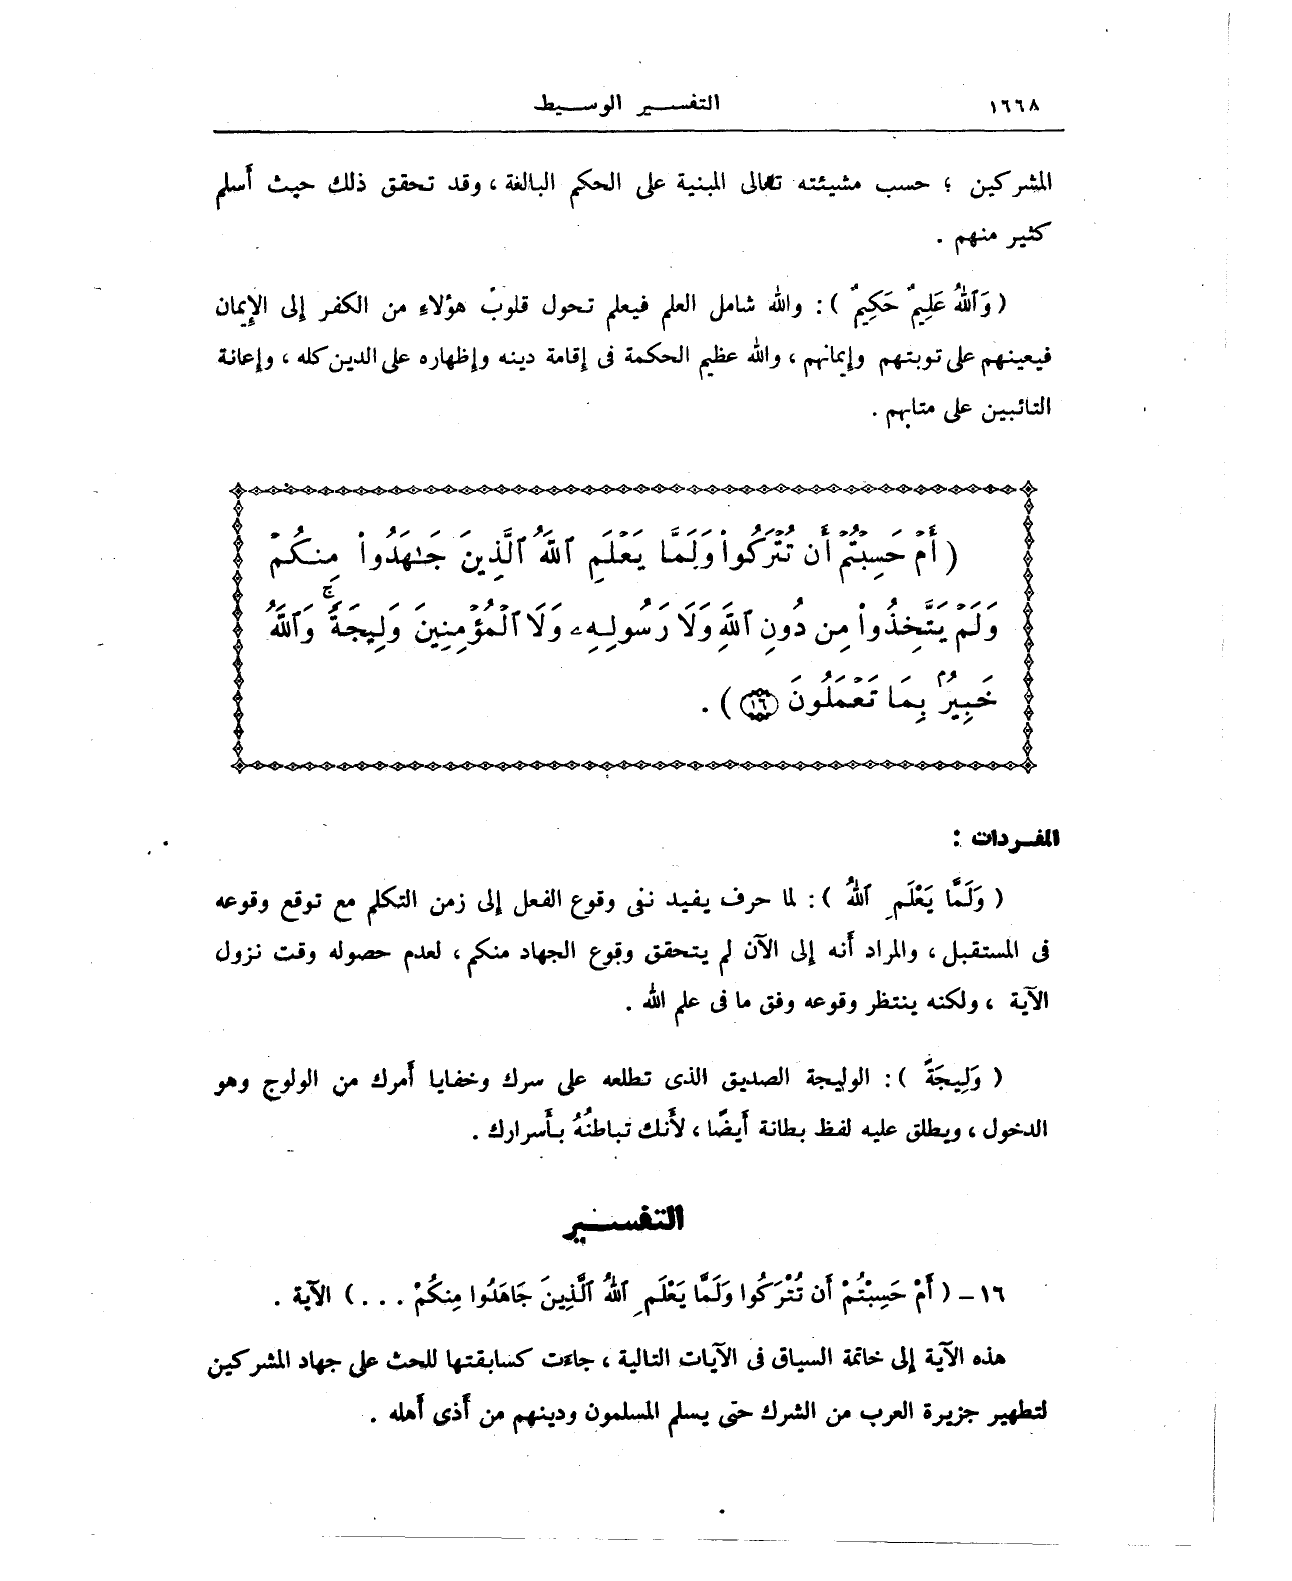 ١٦٦٨
التفسير الوسيط
المشركين ؛ حسب مشيئته تعالى المبنية على الحكم البالغة ، وقد تحقق ذلك حيث أسلم
كثير منهم .
( وَٱللهُ عَلِيمٌ حَكِيمٌ ) : والله شامل العلم فيعلم تحول قلوب هؤلاء من الكفر إلى الإيمان
فيعينهم على توبتهم وإيمانهم ، والله عظيم الحكمة فى إقامة دينه وإظهاره على الدين كله ، وإعانة
التائبين على متابهم .
( أَمْ حَسِبْتُمْ أَن تُتْرَكُواْ وَلَمَّا يَعْلَمِ ٱللَّهُ ٱلَّذِينَ جَـٰهَدُواْ مِنكُمْ
وَلَمْ يَتَّخِذُواْ مِن دُونِ ٱللَّهِ وَلَا رَسُولِهِۦ وَلَا ٱلْمُؤْمِنِينَ وَلِيجَةًۚ وَٱللَّهُ
خَبِيرٌۢ بِمَا تَعْمَلُونَ ١٦ ) .
المفردات :
( وَلَمَّا يَعْلَمِ ٱللهُ ) : لما حرف يفيد نفى وقوع الفعل إلى زمن التكلم مع توقع وقوعه
فى المستقبل ، والمراد أنه إلى الآن لم يتحقق وقوع الجهاد منكم ، لعدم حصوله وقت نزول
الآية ، ولكنه ينتظر وقوعه وفق ما فى علم الله .
( وَلِيجَةً ) : الوليجة الصديق الذى تطلعه على سرك وخفايا أمرك من الولوج وهو
الدخول ، ويطلق عليه لفظ بطانة أيضًا ، لأنك تباطنُهُ بأسرارك .
التفسير
١٦ – ( أَمْ حَسِبْتُمْ أَن تُتْرَكُوا وَلَمَّا يَعْلَمِ ٱللهُ ٱلَّذِينَ جَاهَدُوا مِنكُمْ . . . ) الآية .
هذه الآية إلى خاتمة السياق فى الآيات التالية ، جاءت كسابقتها للحث على جهاد المشركين
لتطهير جزيرة العرب من الشرك حتى يسلم المسلمون ودينهم من أذى أهله .